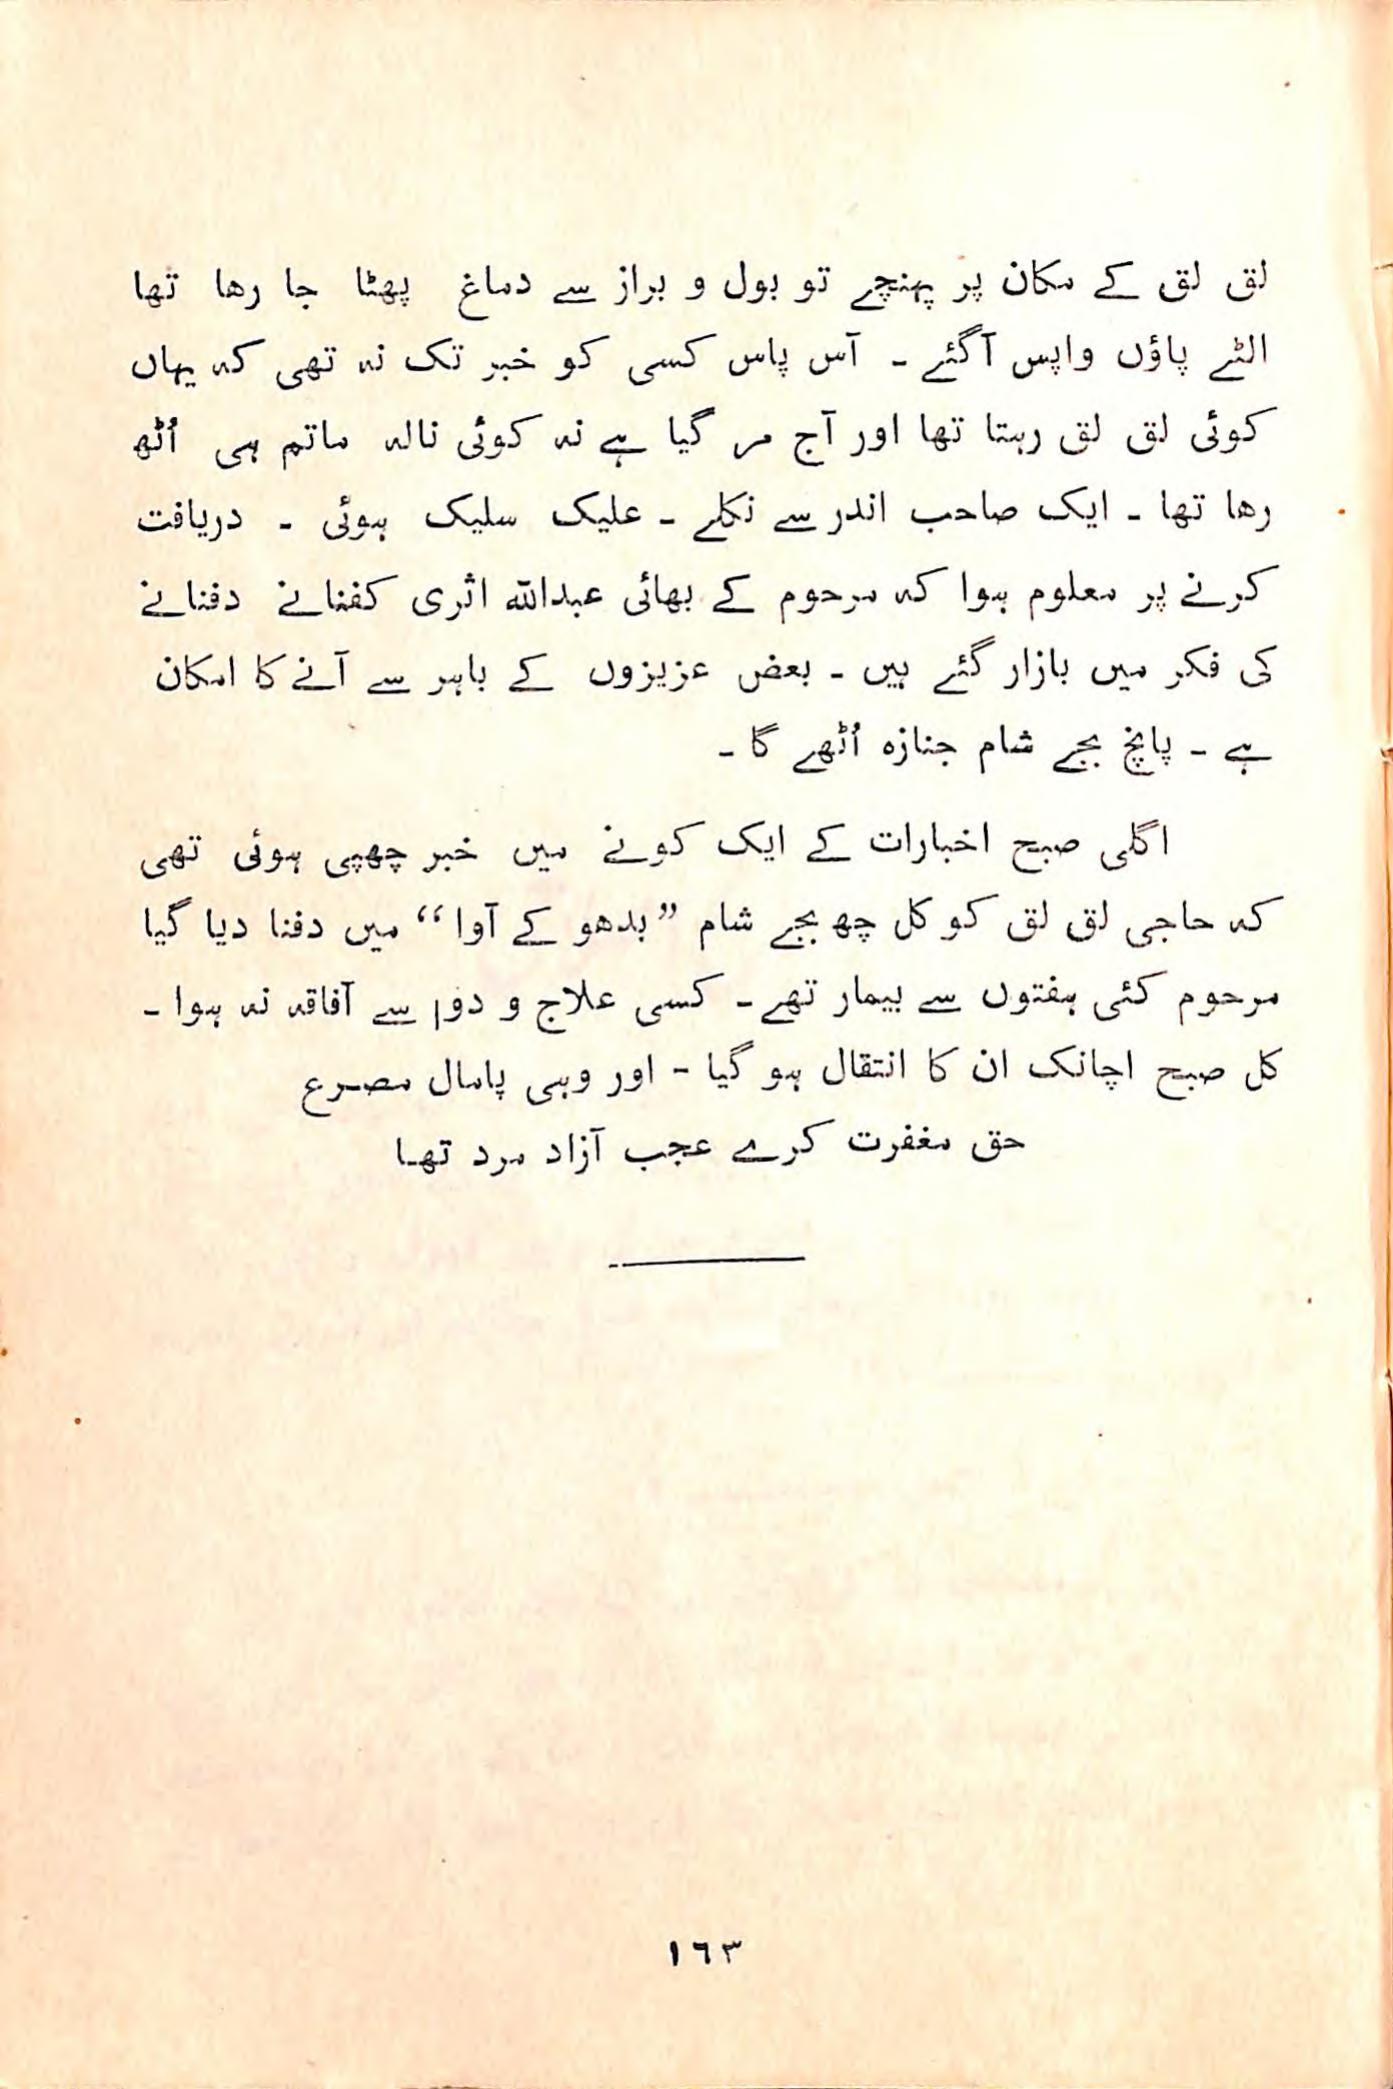 لق لق کے مکان پر پہنچے تو بول و براز سے دماغ پھٹا جا رھا تھا
الٹے پاؤں واپس آگئے ۔ آس پاس کسی کو خبر تک نہ تھی کہ یہاں
کوئی لق لق رہتا تھا اور آج مر گیا ہے نہ کوئی نالہ ماتم ہی اُٹھ
رھا تھا ۔ ایک صاحب اندر سے نکلے ۔ علیک سلیک ہوئی ۔ دریافت
کرنے پر معلوم ہوا کہ مرحوم کے بھائی عبداللہ اثری کفنانے دفنانے
کی فکر میں بازار گئے ہیں ۔ بعض عزیزوں کے باہر سے آنے کا امکان
ہے ۔ پانچ بجے شام جنازہ اُٹھے گا ۔
اگلی صبح اخبارات کے ایک کونے میں خبر چھپی ہوئی تھی
کہ حاجی لق لق کو کل چھ بجے شام ”بدھو کے آوا“ میں دفنا دیا گیا
مرحوم کئی ہفتوں سے بیمار تھے ۔ کسی علاج و دوا سے آفاقہ نہ ہوا ۔
کل صبح اچانک ان کا انتقال ہو گیا - اور وہی پامال مصرع
حق مغفرت کرے عجب آزاد مرد تھا
١٦٣